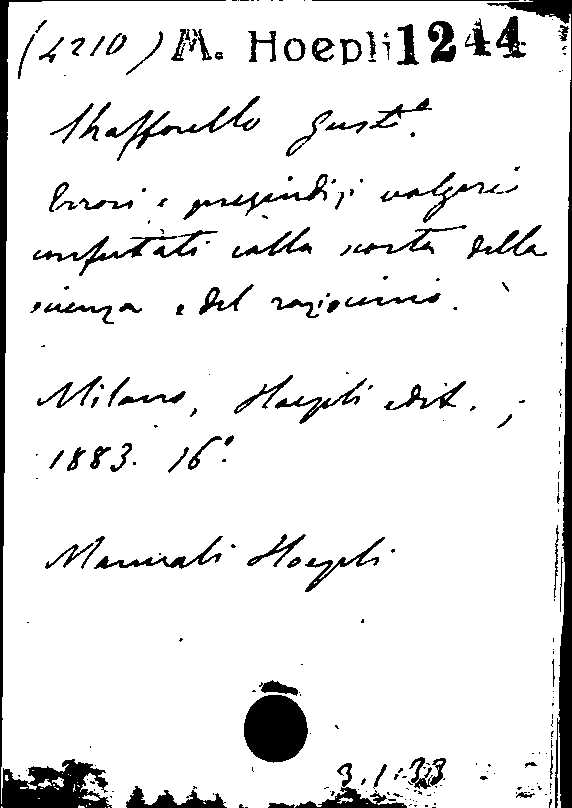 (4210) M. Hoepli 1244
Strafforello Gust.º
Errori e pregiudizi volgari
confutati colla scorta della
scienza e del raziocinio.
Milano, Hoepli edit. ;
1883. 16º
Manuali Hoepli
3.1.33